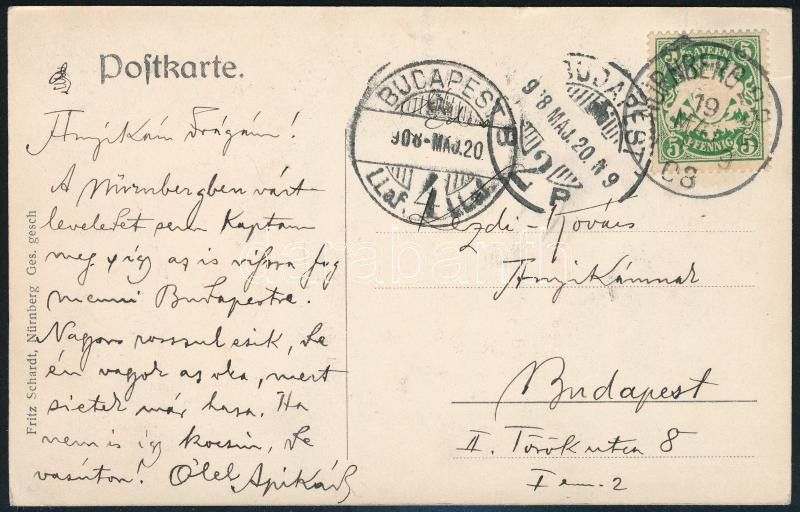 Postkarte.
Anyikám drágám!
A Nürnbergben várt
leveledet sem kaptam
meg s így az is vissza fog
menni Budapestre.
Nagyon rosszul esik, de
én vagyok az oka, mert
sietek már haza. Ha
nem is így kocsin, de
vasúton! Ölel Apikád
Fritz Schardt, Nürnberg Ges. gesch
BUDAPEST
908-MÁJ.20
4
BUDAPEST
908 MÁJ.20.N9
2
P
NÜRNBERG
19
MAI
08
BAYERN
5 5
5 5
PFENNIG
Kezdi Kovács
Anyikámnak
Budapest
II. Törökutca 8
I em. 2
darabanth